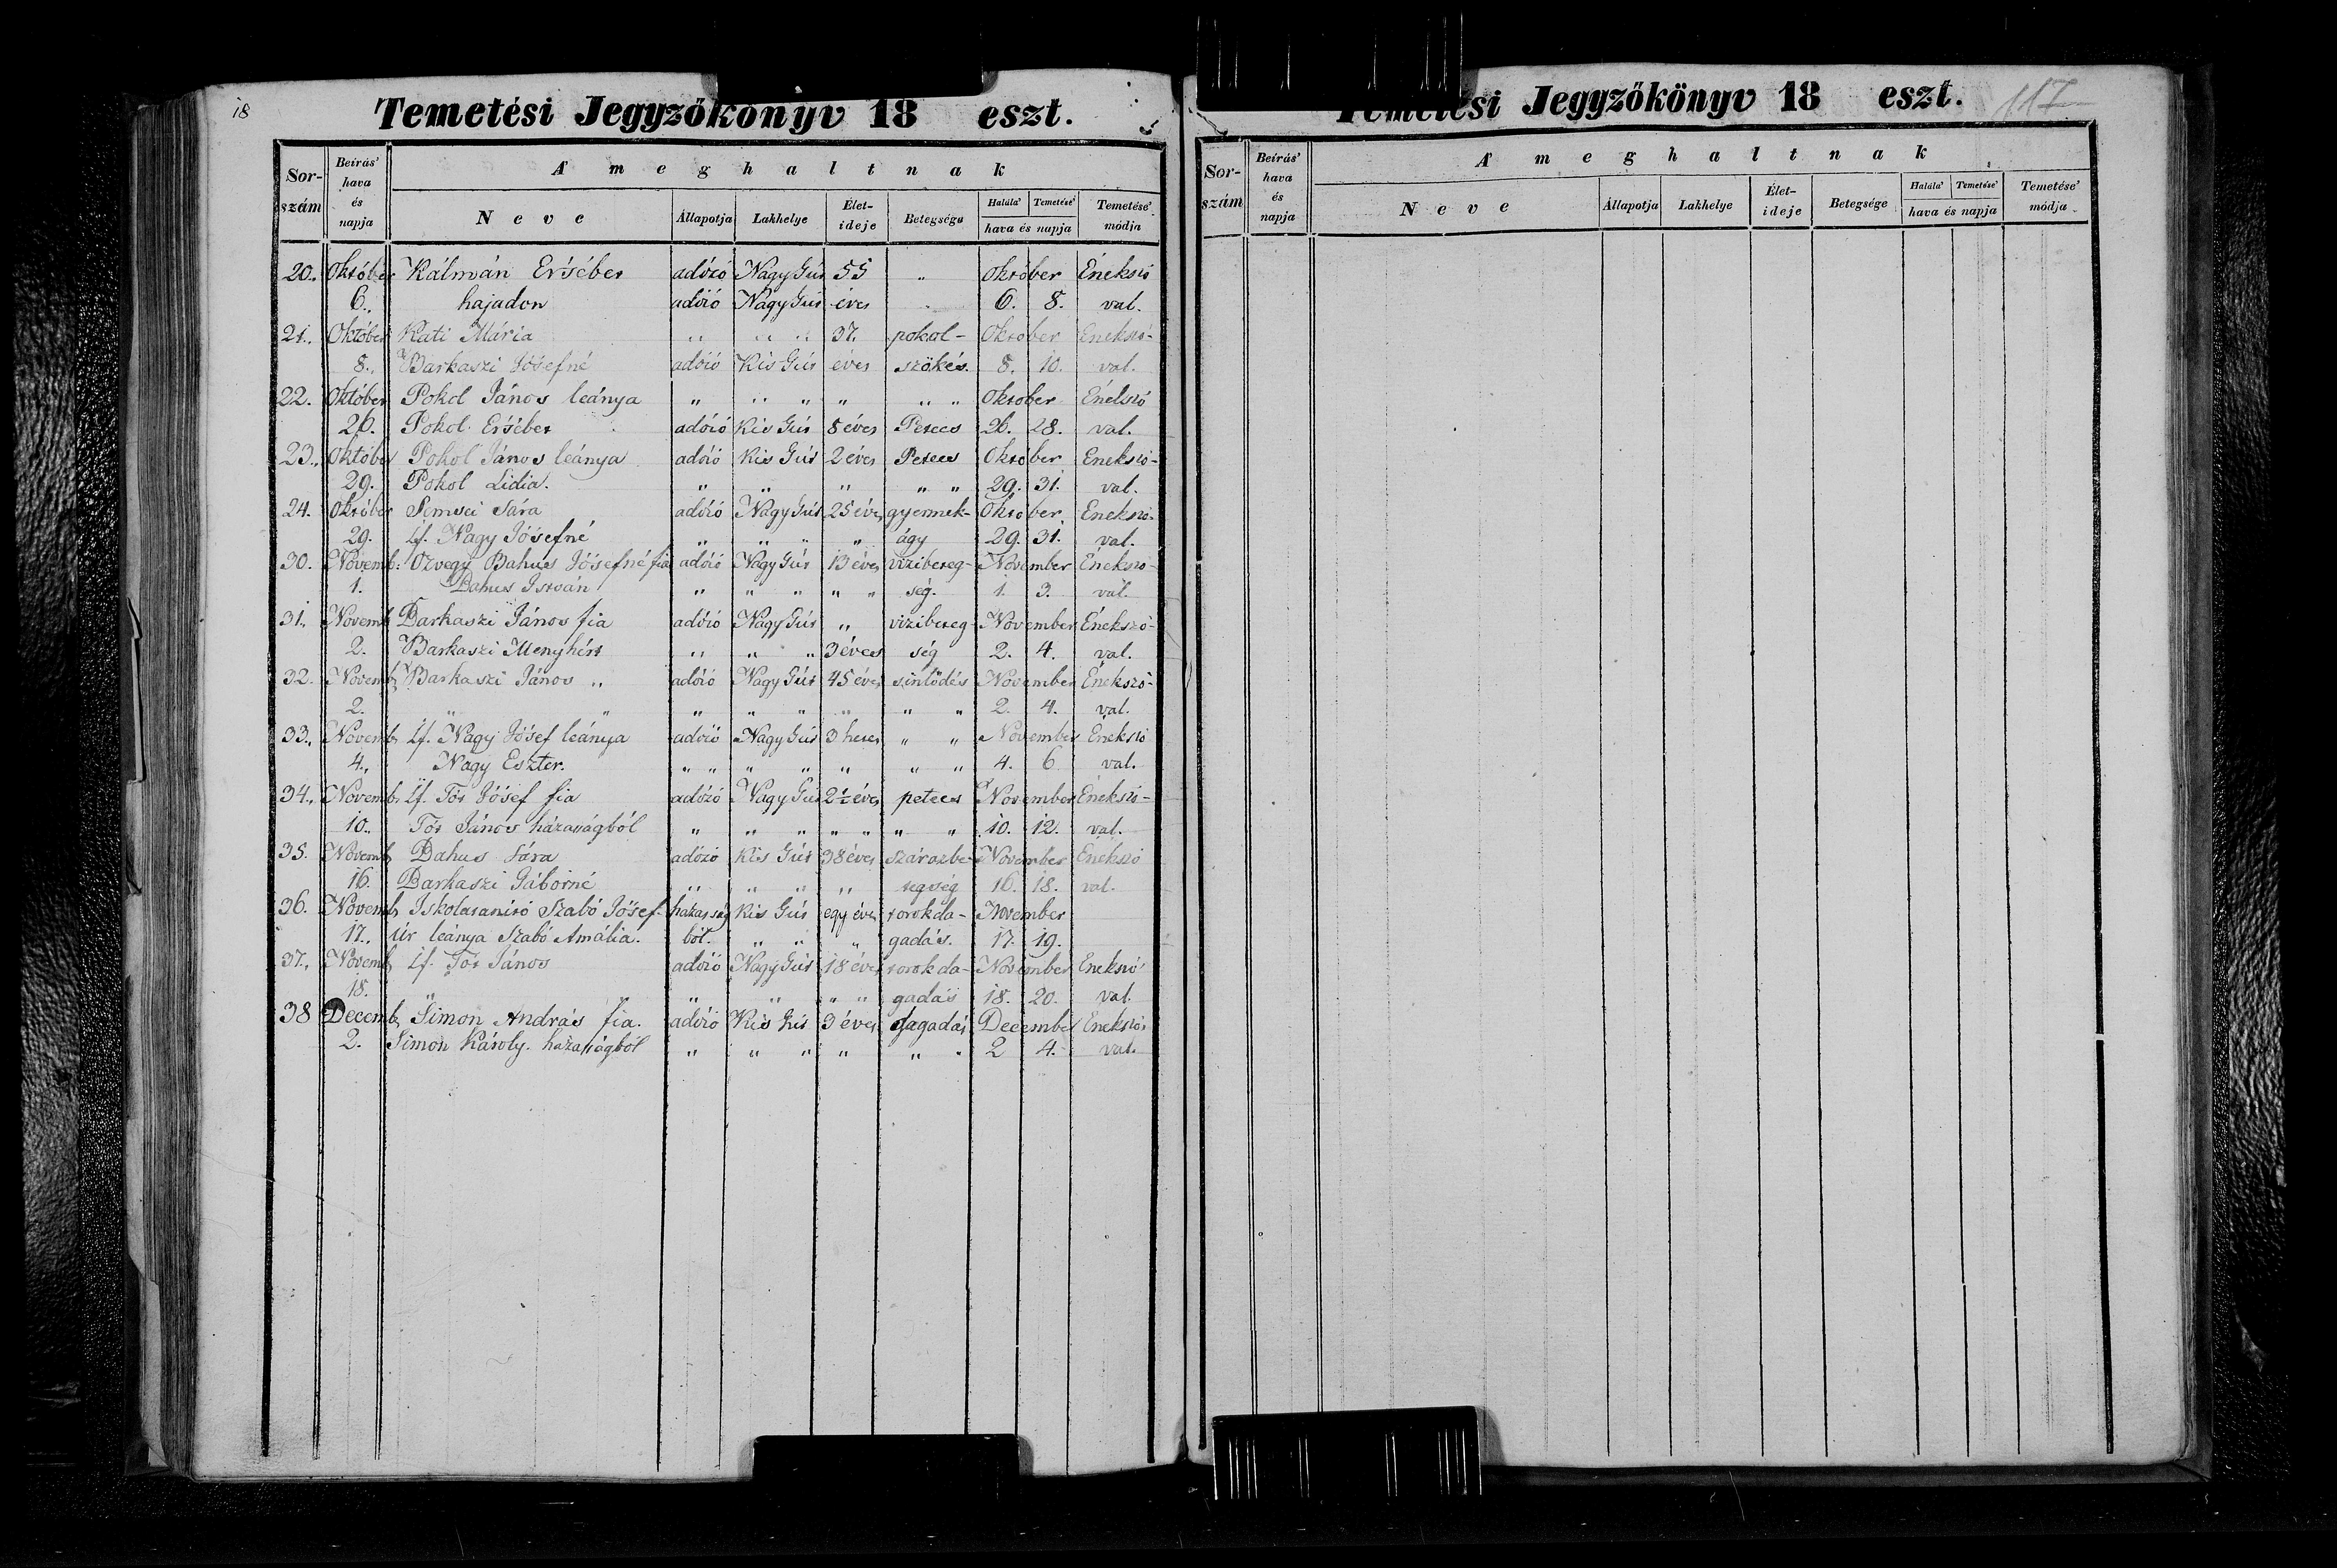 18
Temetési Jegyzőkönyv 18 eszt.
Sor-szám Beírás' hava és napja A' meghaltnak
Neve Állapotja Lakhelye Élet-ideje Betegsége Halála' Temetése' hava és napja Temetése' módja
20. Október Kálmán Ersébet adózó Nagy Gút 55 " Október Énekszó
6. hajadon adózó Nagy Gút éves 6. 8. val.
21. Október Kati Mária " " " 37. pokol- Oktober Énekszó-
8. Barkaszi Jósefné adózó Kis Gút éves szökés. 8. 10. val.
22. Október Pokol János leánya " " " " " " Oktober Énelszó
26. Pokol Ersébet adózó Kis Gút 8 éves Petecs 26. 28. val.
23. Október Pokol János leánya adózó Kis Gút 2 éves Petecs Oktober Énekszó-
29. Pokol Lidia. " " " " " 29. 31. val.
24. Október Semsei Sára adózó Nagy Gút 25 éves gyermek- Oktober Énekszó-
29. if. Nagy Jósefné " " " " ágy 29. 31. val.
30. Novemb. Özvegy Bahus Jósefné fia adózó Nagy Gút 13 éves vizibeteg- November Énekszó-
1. Bahus István " " " " " ség. 1. 3. val.
31. Novemb Barkaszi János fia adózó Nagy Gút " vizibeteg- November Énekszó-
2. Barkaszi Menyhért " " " 3 éves ség 2. 4. val.
32. Novemb Barkaszi János " adózó Nagy Gút 45 éves sinlődés November Énekszó-
2. " " " " " " " " 2. 4. val.
33. Novemb if. Nagy Jósef leánya adózó Nagy Gút 3 hetes " " November Énekszó
4. Nagy Eszter. " " " " " " " 4. 6 val.
34. Novemb if. Tót Jósef fia adózó Nagy Gút 2½ éves petecs November Énekszó-
10. Tót János házasságból " " " " " " " 10. 12. val.
35. Novemb Bahus Sára adózó Kis Gút 38 éves szárazbe- November Énekszó
16. Barkaszi Gáborné " " " " tegség 16. 18. val.
36. Novemb Iskolatanitó Szabó Jósef- házasság Kis Gút egy éves torokda- November
17. úr leánya Szabó Amália. ból. " " " gadás. 17. 19.
37. Novemb if. Tót János adózó Nagy Gút 18 éves torokda- November Énekszó
18. " " " " " gadás 18. 20. val.
38 Decemb Simon András fia. adózó Kis Gút 3 éves dagadás December Énekszó
2. Simon Károly. házasságból " " " " " " 2 4. val.
Temetési Jegyzőkönyv 18 eszt.
117
Sor-szám Beírás' hava és napja A' meghaltnak
Neve Állapotja Lakhelye Élet-ideje Betegsége Halála' Temetése' hava és napja Temetése' módja